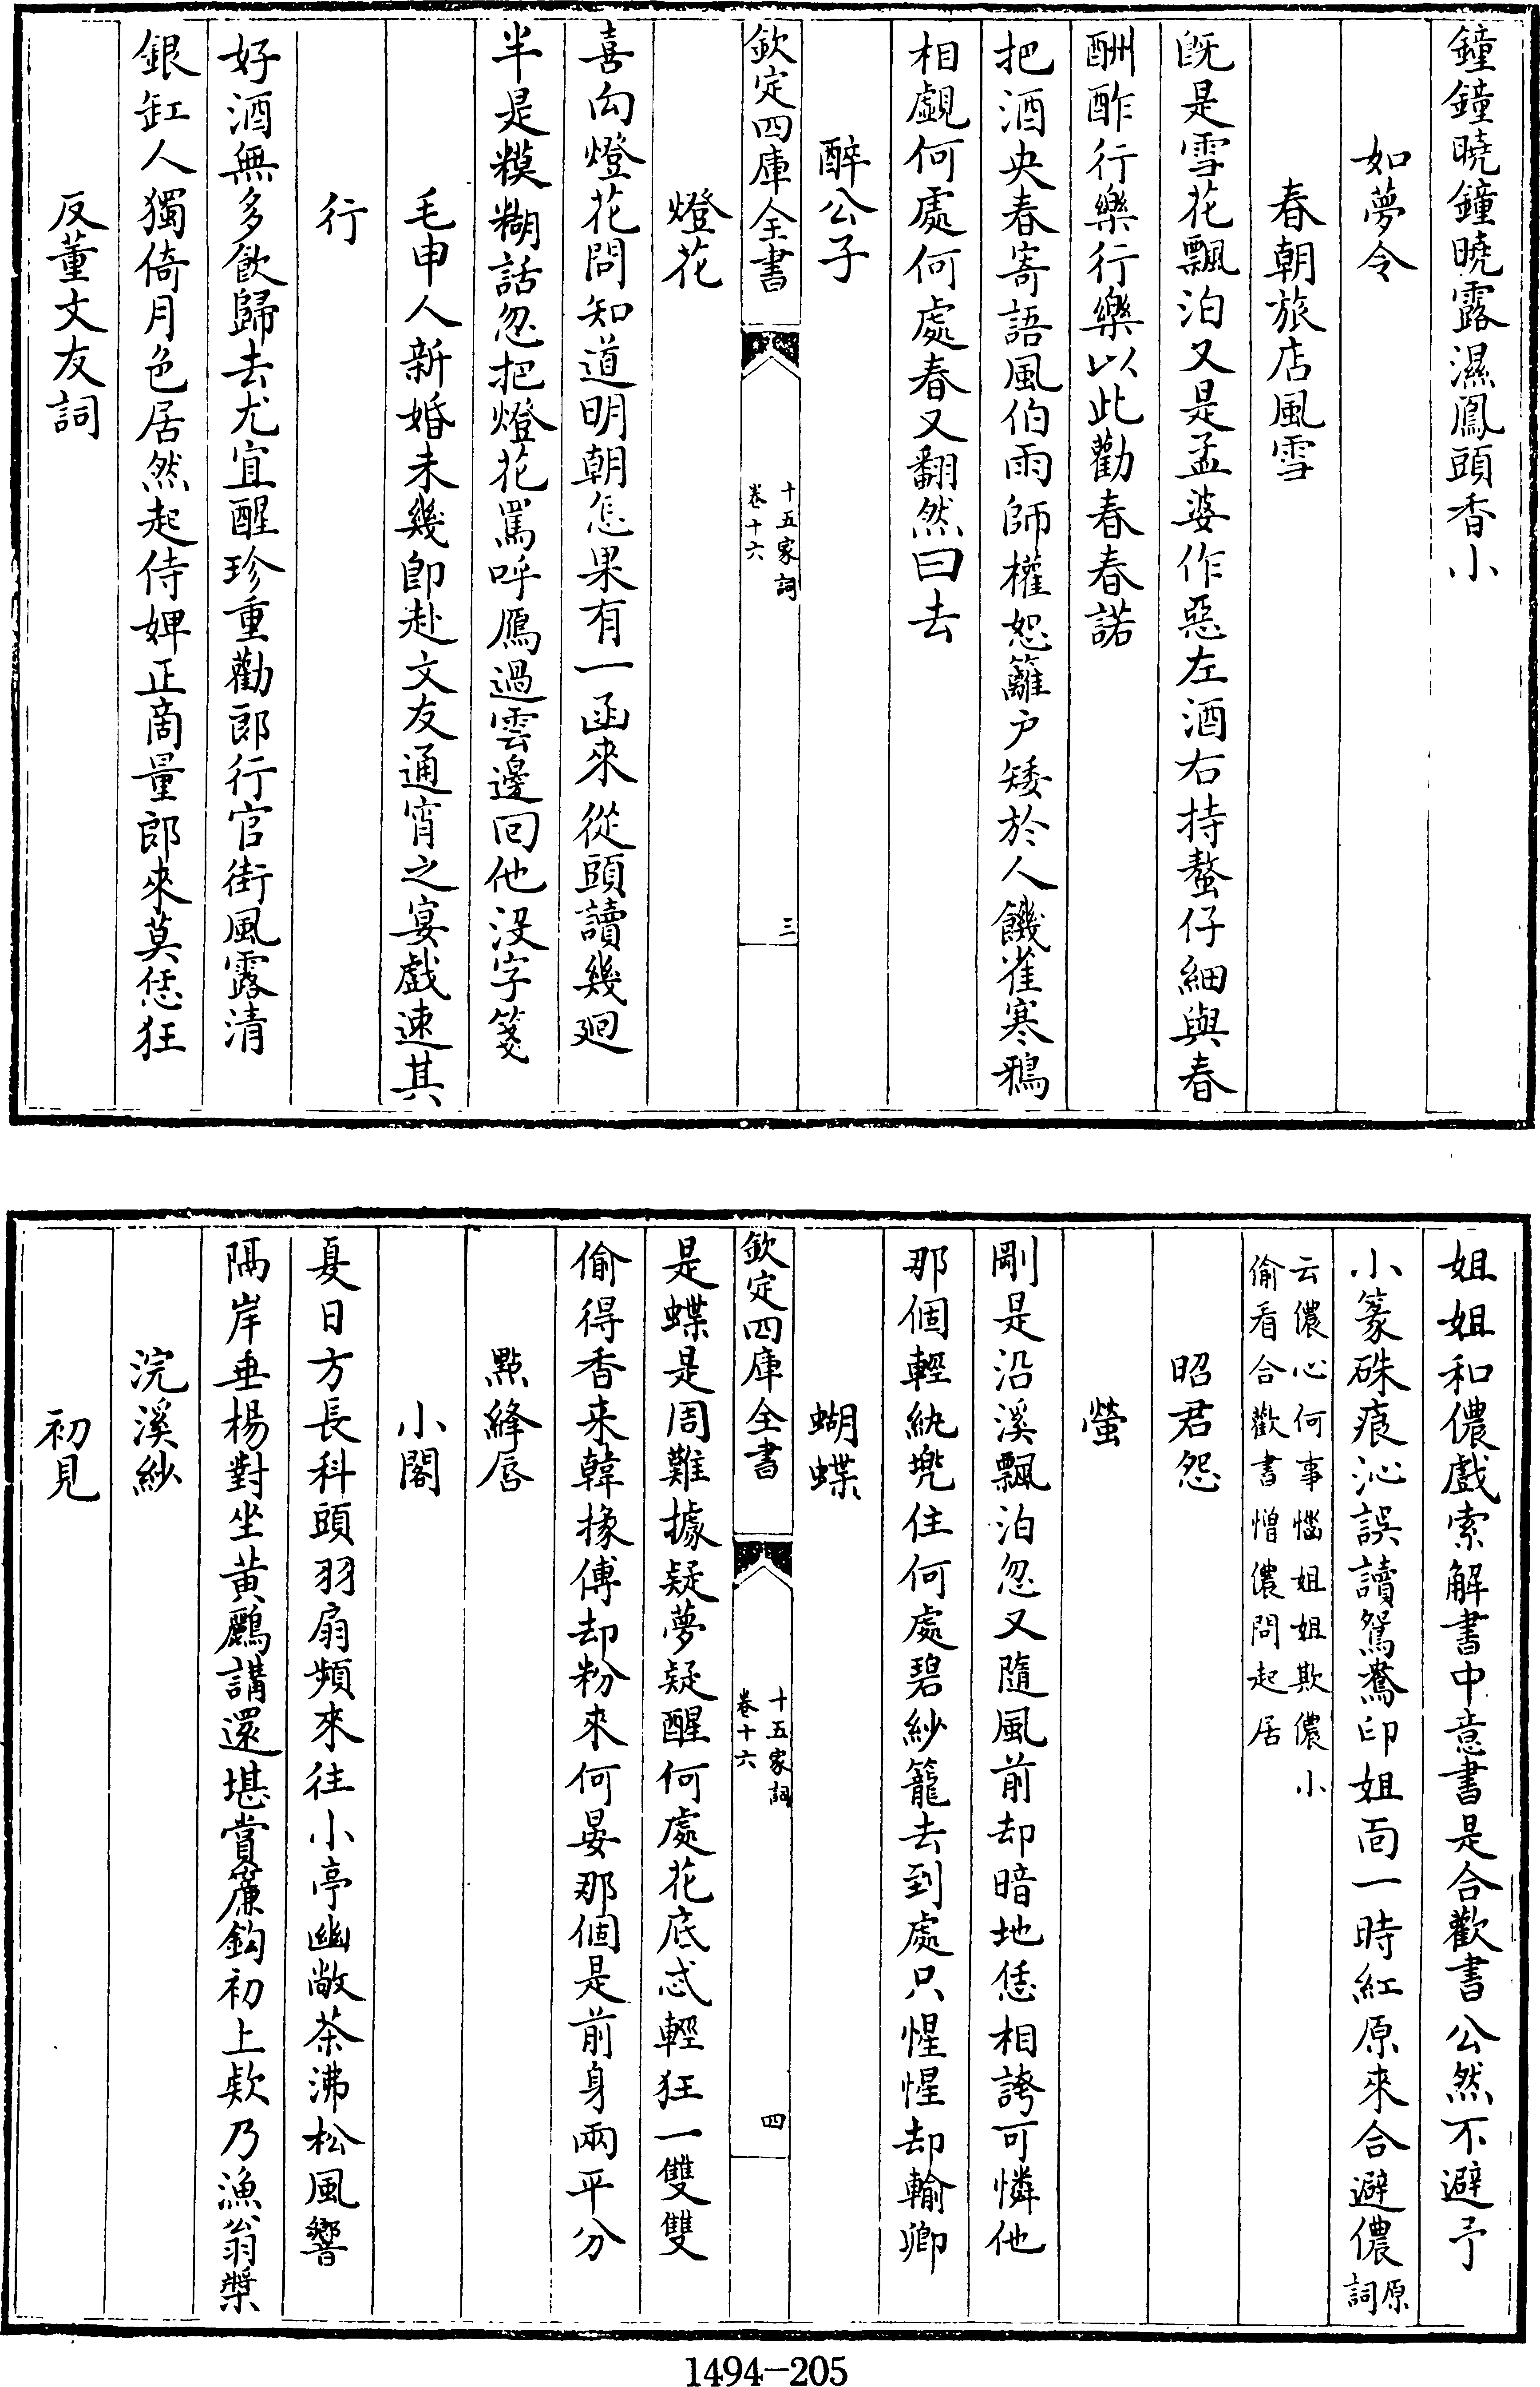 鐘鐘曉鐘曉露濕鳳頭香小
如夢令
春朝旅店風雪
既是雪花飄泊又是孟婆作惡左酒右持螯仔細與春
酬酢行樂行樂以此勸春春諾
把酒央春寄語風伯雨師權恕籬户矮於人饑雀寒鴉
相覷何處何處春又翻然曰去
醉公子
欽定四庫全書
十五家詞
卷十六
三
燈花
喜向燈花問知道明朝怎果有一函來從頭讀幾廻
半是糢糊話忽把燈花罵呼鴈過雲邊回他没字箋
毛申人新婚未幾即赴文友通宵之宴戲速其
行
好酒無多飲歸去尤宜醒珍重勸郎行官街風露清
銀缸人獨倚月色居然起侍婢正商量郎來莫恁狂
反董文友詞
姐姐和儂戲索解書中意書是合歡書公然不避予
小篆硃痕沁誤讀鴛鴦印姐面一時紅原來合避儂原詞
云儂心何事惱姐姐欺儂小
偷看合歡書憎儂問起居
昭君怨
螢
剛是沿溪飄泊忽又隨風前却暗地恁相誇可憐他
那個輕紈兠住何處碧紗籠去到處只惺惺却輸卿
蝴蝶
欽定四庫全書
十五家詞
卷十六
四
是蝶是周難據疑夢疑醒何處花底忒輕狂一雙雙
偷得香来韓掾傅却粉來何晏那個是前身兩平分
點絳唇
小閣
夏日方長科頭羽扇頻來往小亭幽敞茶沸松風響
隔岸垂楊對坐黄鸝講還堪賞簾鈎初上欵乃漁翁槳
浣溪紗
初見
1494-205